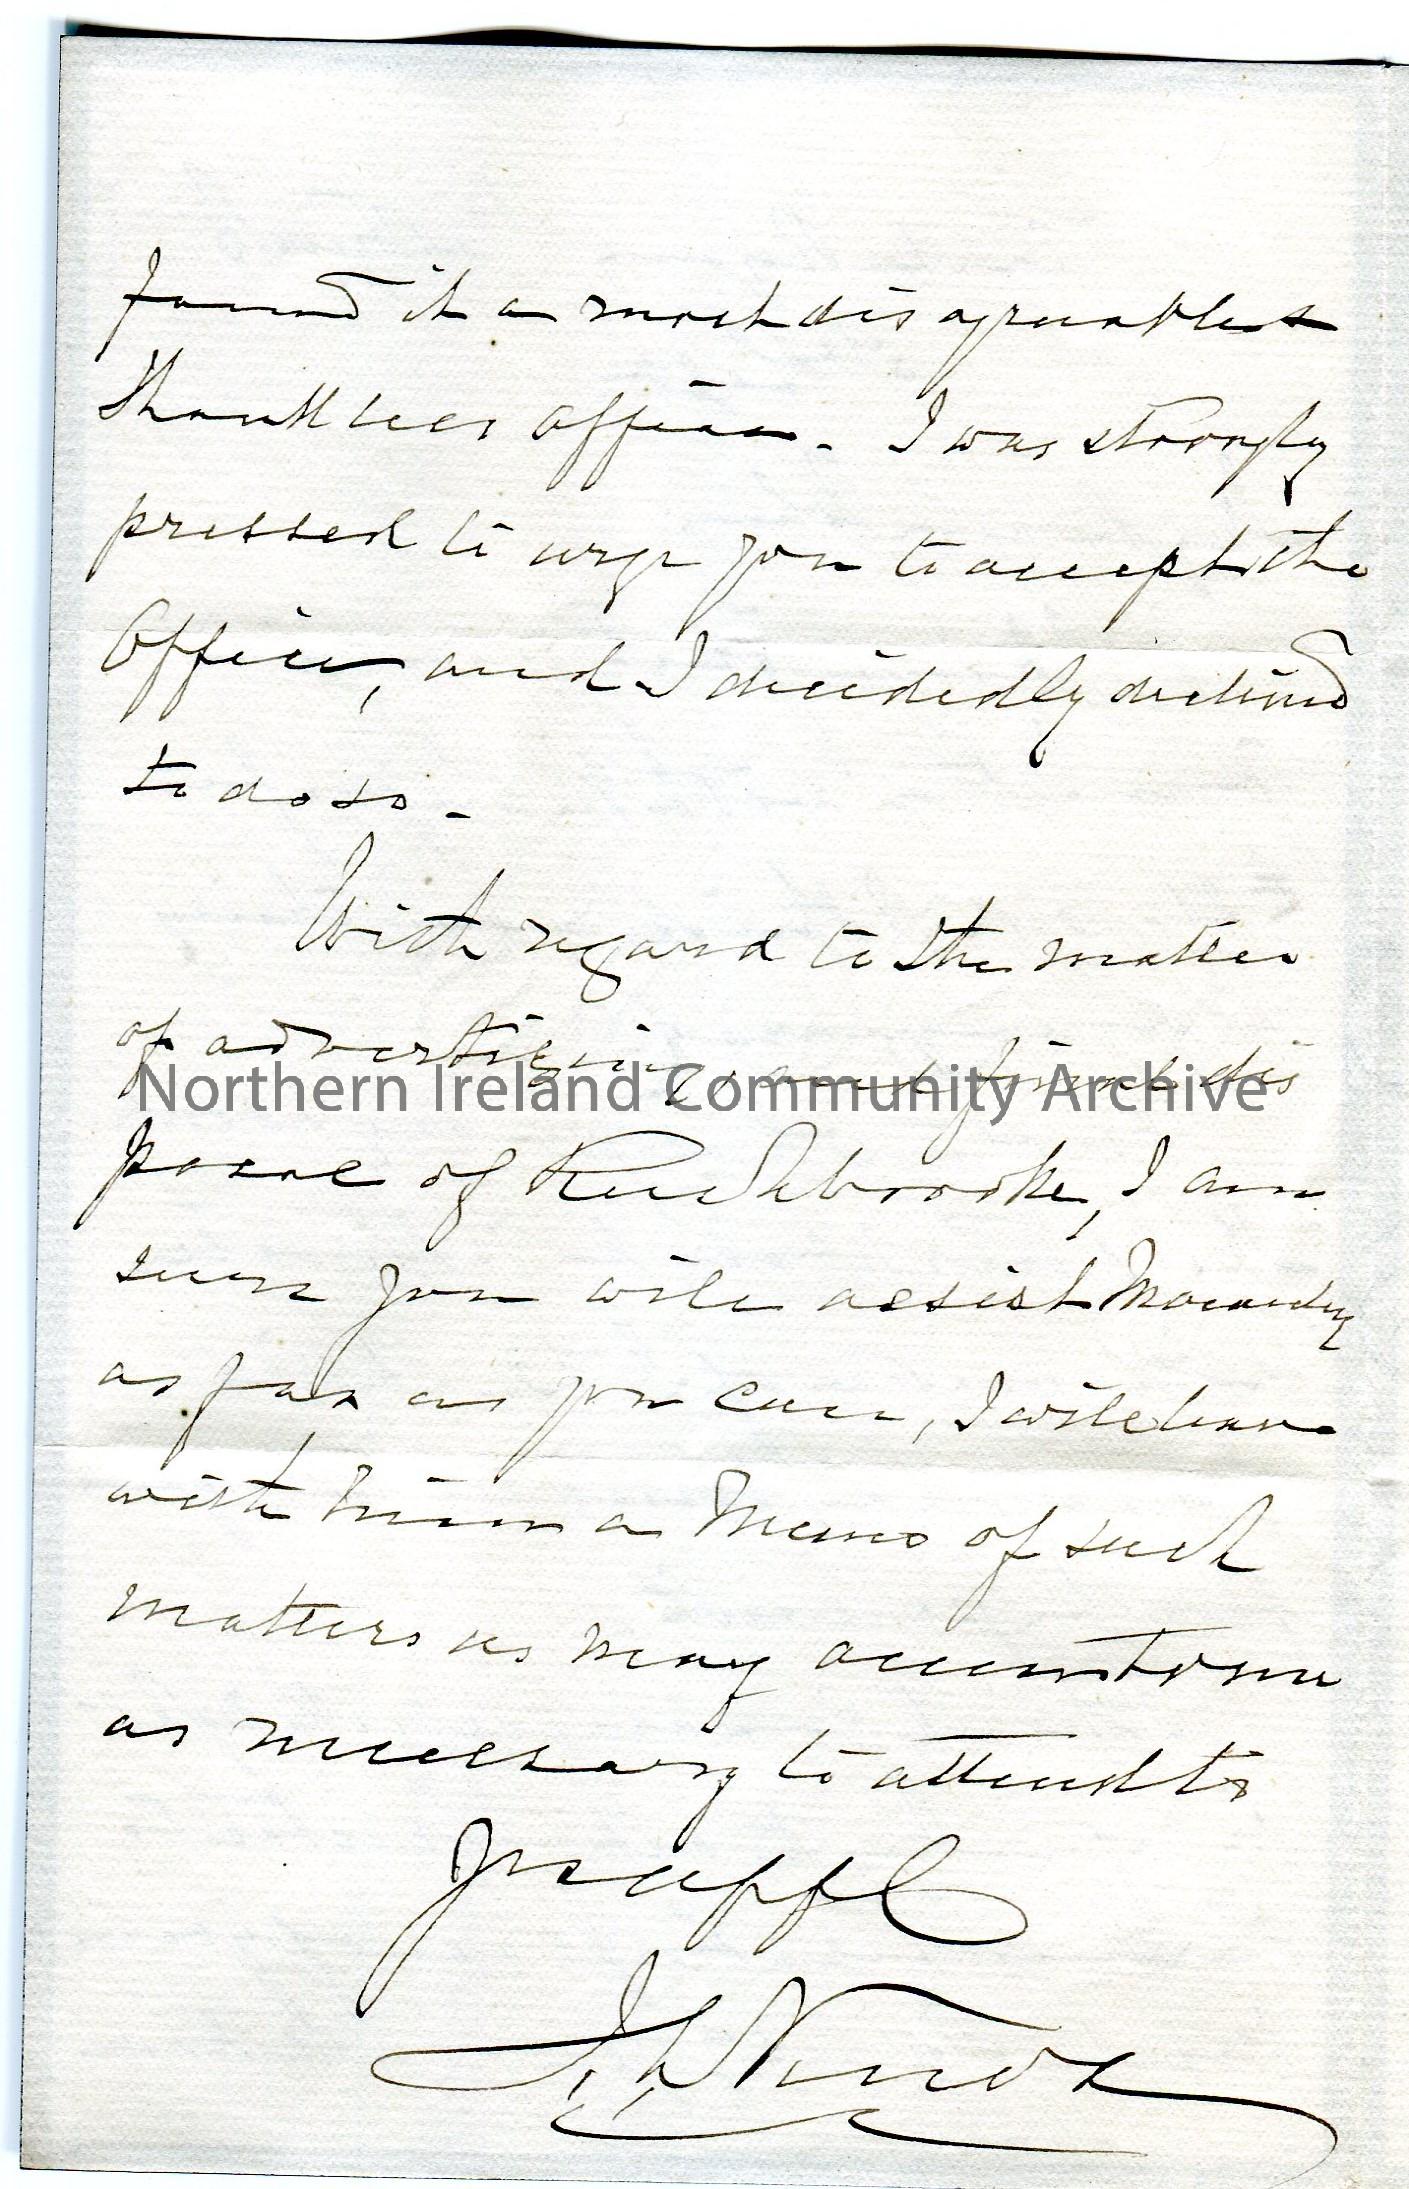 found it a most disagreeable &
thankless office. I was strongly
pressed to urge you to accept the
office, and I decidedly declined
to do so.
With regard to the matter
of advertizing and final dis
Northern Ireland Community Archive
posal of Rushbrooke, I am
sure you will assist
as far as you can, I will leave
with him a Memo of such
matters as may occur to me
as necessary to attend to